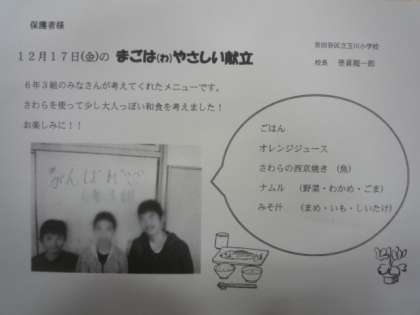 保護者様
世田谷区立玉川小学校
校長
１２月１７日(金)の まごは(わ)やさしい献立
６年３組のみなさんが考えてくれたメニューです。
さわらを使って少し大人っぽい和食を考えました！
お楽しみに！！
がんばれぞ
６年３組
ごはん
オレンジジュース
さわらの西京焼き （魚）
ナムル （野菜・わかめ・ごま）
みそ汁 （まめ・いも・しいたけ）